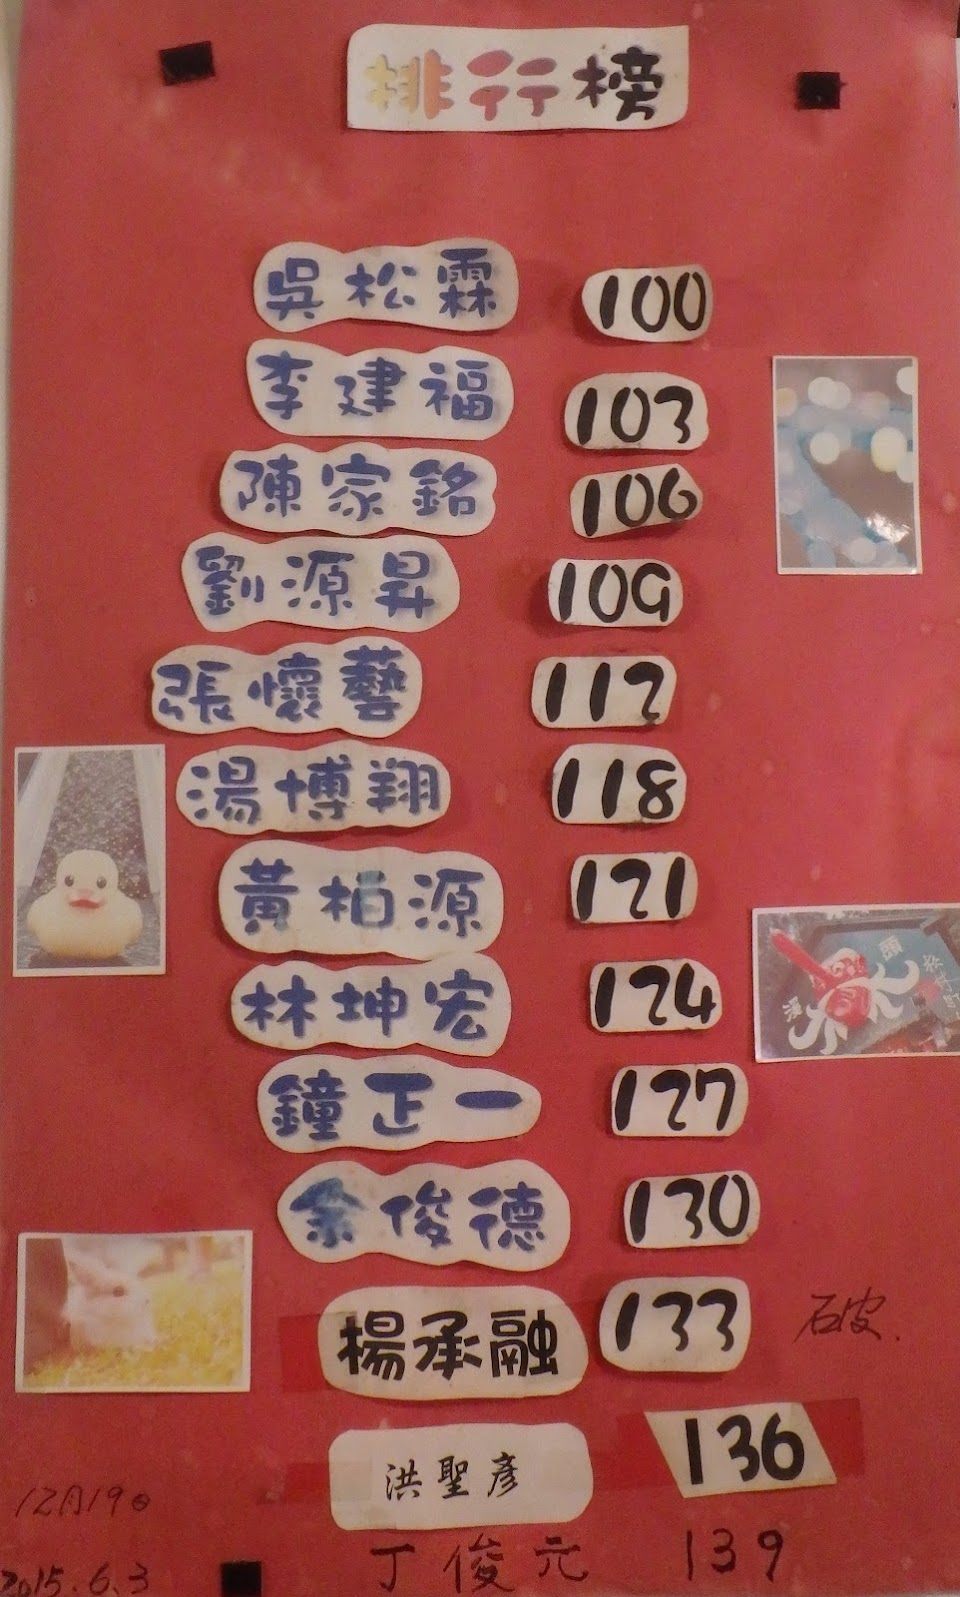 排行榜
吳松霖 100
李建福 103
陳家銘 106
劉源昇 109
張懷藝 112
湯博翔 118
黃柏源 121
林坤宏 124
鐘正一 127
余俊德 130
楊承融 133 破.
洪聖彥 136
12月19日
丁俊元 139
2015.6.3
頭